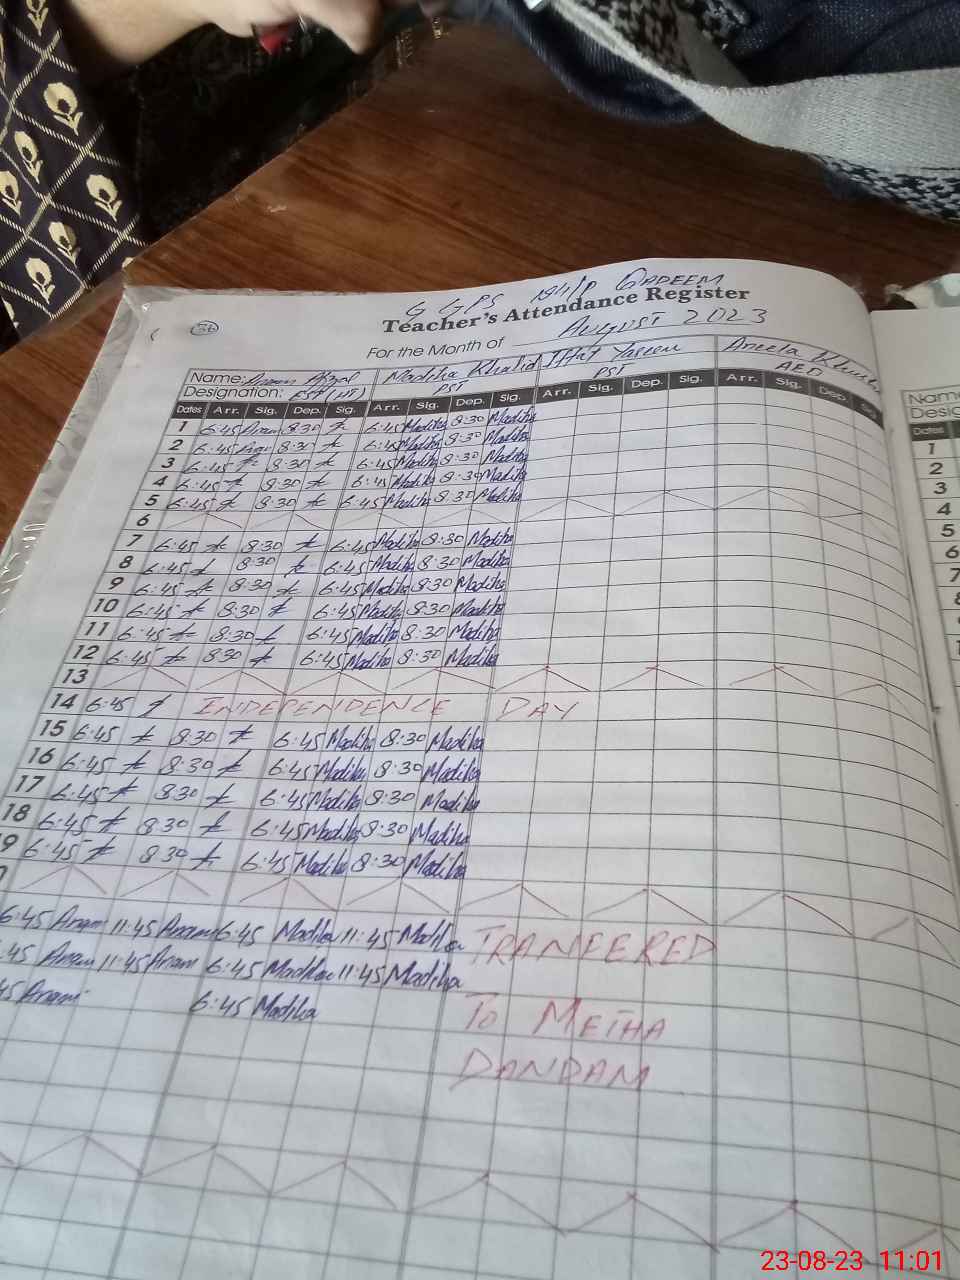 36
G GPS 194/P QADEEM
Teacher's Attendance Register
For the Month of AUGUST 2023
Name: Anam Afzal Madiha Khalid Iffat Yaseen Aneela
Designation: PST PST AED
Dates Arr. Sig. Dep. Sig. Arr. Sig. Dep. Sig. Arr. Sig. Dep. Sig. Arr. Sig. Dep.
1 6:45 Anam 8:30 6:45 Madiha 8:30 Madiha
2 6:45 8:30 6:45 Madiha 8:30 Madiha
3 6:45 8:30 6:45 Madiha 8:30 Madiha
4 6:45 8:30 6:45 Madiha 8:30 Madiha
5 6:45 8:30 6:45 Madiha 8:30 Madiha
6
7 6:45 8:30 6:45 Madiha 8:30 Madiha
8 6:45 8:30 6:45 Madiha 8:30 Madiha
9 6:45 8:30 6:45 Madiha 8:30 Madiha
10 6:45 8:30 6:45 Madiha 8:30 Madiha
11 6:45 8:30 6:45 Madiha 8:30 Madiha
12 6:45 8:30 6:45 Madiha 8:30 Madiha
13
14 6:45 INDEPENDENCE DAY
15 6:45 8:30 6:45 Madiha 8:30 Madiha
16 6:45 8:30 6:45 Madiha 8:30 Madiha
17 6:45 8:30 6:45 Madiha 8:30 Madiha
18 6:45 8:30 6:45 Madiha 8:30 Madiha
9 6:45 8:30 6:45 Madiha 8:30 Madiha
6:45 Anam 11:45 Anam 6:45 Madiha 11:45 Madiha TRANFERED
:45 Anam 11:45 Anam 6:45 Madiha 11:45 Madiha
45 Anam 6:45 Madiha To METHA
DANDAM
Name
Desig
Dates
1
2
3
4
5
6
7
23-08-23 11:01